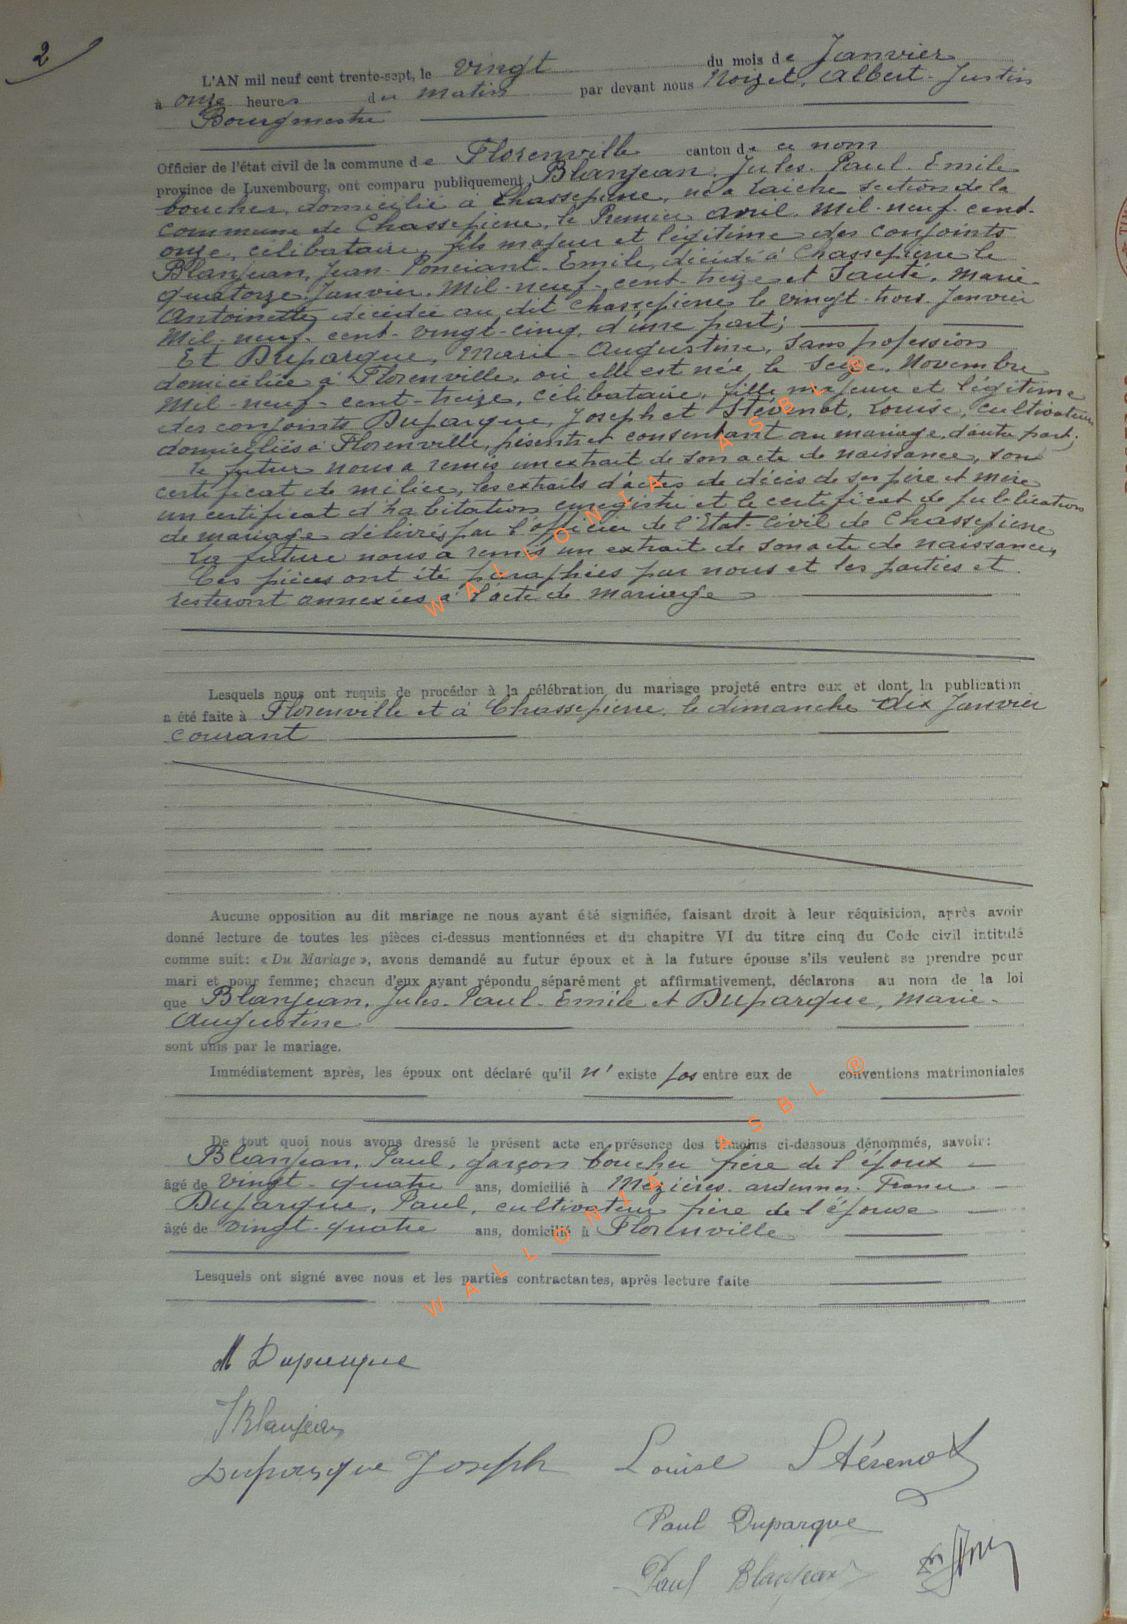 2
L'AN mil neuf cent trente-sept, le vingt du mois de Janvier
à onze heures du matin par devant nous Noizet, Albert-Justin
Bourgmestre
Officier de l'état civil de la commune de Florenville canton de ce nom
province de Luxembourg, ont comparu publiquement Blanjean, Jules-Paul-Emile
boucher, domicilié à Chassepierre, né à Laiche section de la
commune de Chassepierre, le Premier avril, Mil-neuf-cent-
onze, célibataire, fils majeur et légitime des conjoints
Blanjean, Jean-Ponciant-Emile, décédé à Chassepierre le
quatorze Janvier, Mil-neuf-cent-treize et Marie-
Antoinette, décédée au dit Chassepierre le vingt-trois Janvier
Mil-neuf-cent-vingt-cinq, d'une part;
Et Duparque, Marie-Augustine, sans profession
domiciliée à Florenville, où elle est née, le Seize, Novembre
Mil-neuf-cent-treize, célibataire, fille majeure et légitime
des conjoints Duparque, Joseph et Stévenot, Louise, cultivateurs
domiciliés à Florenville, présents et consentant au mariage, d'autre part;
Le futur nous a remis un extrait de son acte de naissance, son
certificat de milice, les extraits d'actes de décès de ses père et mère
un certificat d'habitation enregistré et le certificat de publication
de mariage délivrés par l'officier de l'Etat-Civil de Chassepierre
La future nous a remis un extrait de son acte de naissance,
Ces pièces ont été paraphées par nous et les parties et
resteront annexées à l'acte de mariage
Lesquels nous ont requis de procéder à la célébration du mariage projeté entre eux et dont la publication
a été faite à Florenville et à Chassepierre le dimanche dix Janvier
courant
Aucune opposition au dit mariage ne nous ayant été signifiée, faisant droit à leur réquisition, après avoir
donné lecture de toutes les pièces ci-dessus mentionnées et du chapitre VI du titre cinq du Code civil intitulé
comme suit: « Du Mariage », avons demandé au futur époux et à la future épouse s'ils veulent se prendre pour
mari et pour femme; chacun d'eux ayant répondu séparément et affirmativement, déclarons au nom de la loi
que Blanjean, Jules-Paul-Emile et Duparque, Marie-
Augustine
sont unis par le mariage.
Immédiatement après, les époux ont déclaré qu'il n'existe pas entre eux de conventions matrimoniales
De tout quoi nous avons dressé le présent acte en présence des témoins ci-dessous dénommés, savoir:
Blanjean, Paul, garçon boucher frère de l'époux
âgé de vingt-quatre ans, domicilié à Mézières-ardennes-France
Duparque, Paul, cultivateur frère de l'épouse
âgé de vingt-quatre ans, domicilié à Florenville
Lesquels ont signé avec nous et les parties contractantes, après lecture faite
M Duparque
J Blanjean
Duparque Joseph Louise Stévenot
Paul Duparque
Paul Blanjean
WALLONIA ASBL ®
WALLONIA ASBL ®